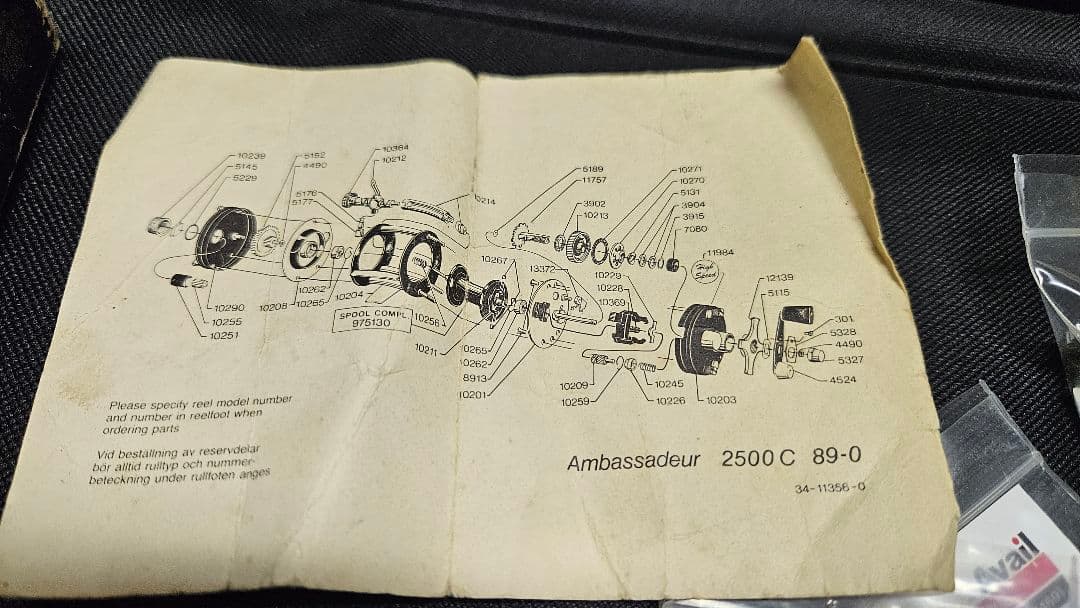 10239
5145
5229
5152
4490
10364
10212
5176
5177
10214
10290
10255
10251
10208
10262
10265
10204
SPOOL COMPL
975130
10256
10211
10267
10265
10262
8913
10201
5189
11757
3902
10213
10271
10270
5131
3904
3915
7080
11984
High
Speed
13372
10229
10228
10369
12139
5115
301
5328
4490
5327
4524
10209
10259
10245
10226
10203
Please specify reel model number
and number in reelfoot when
ordering parts
Vid beställning av reservdelar
bör alltid rulltyp och nummer-
beteckning under rullfoten anges
Ambassadeur 2500 C 89-0
34-11356-0
Avail